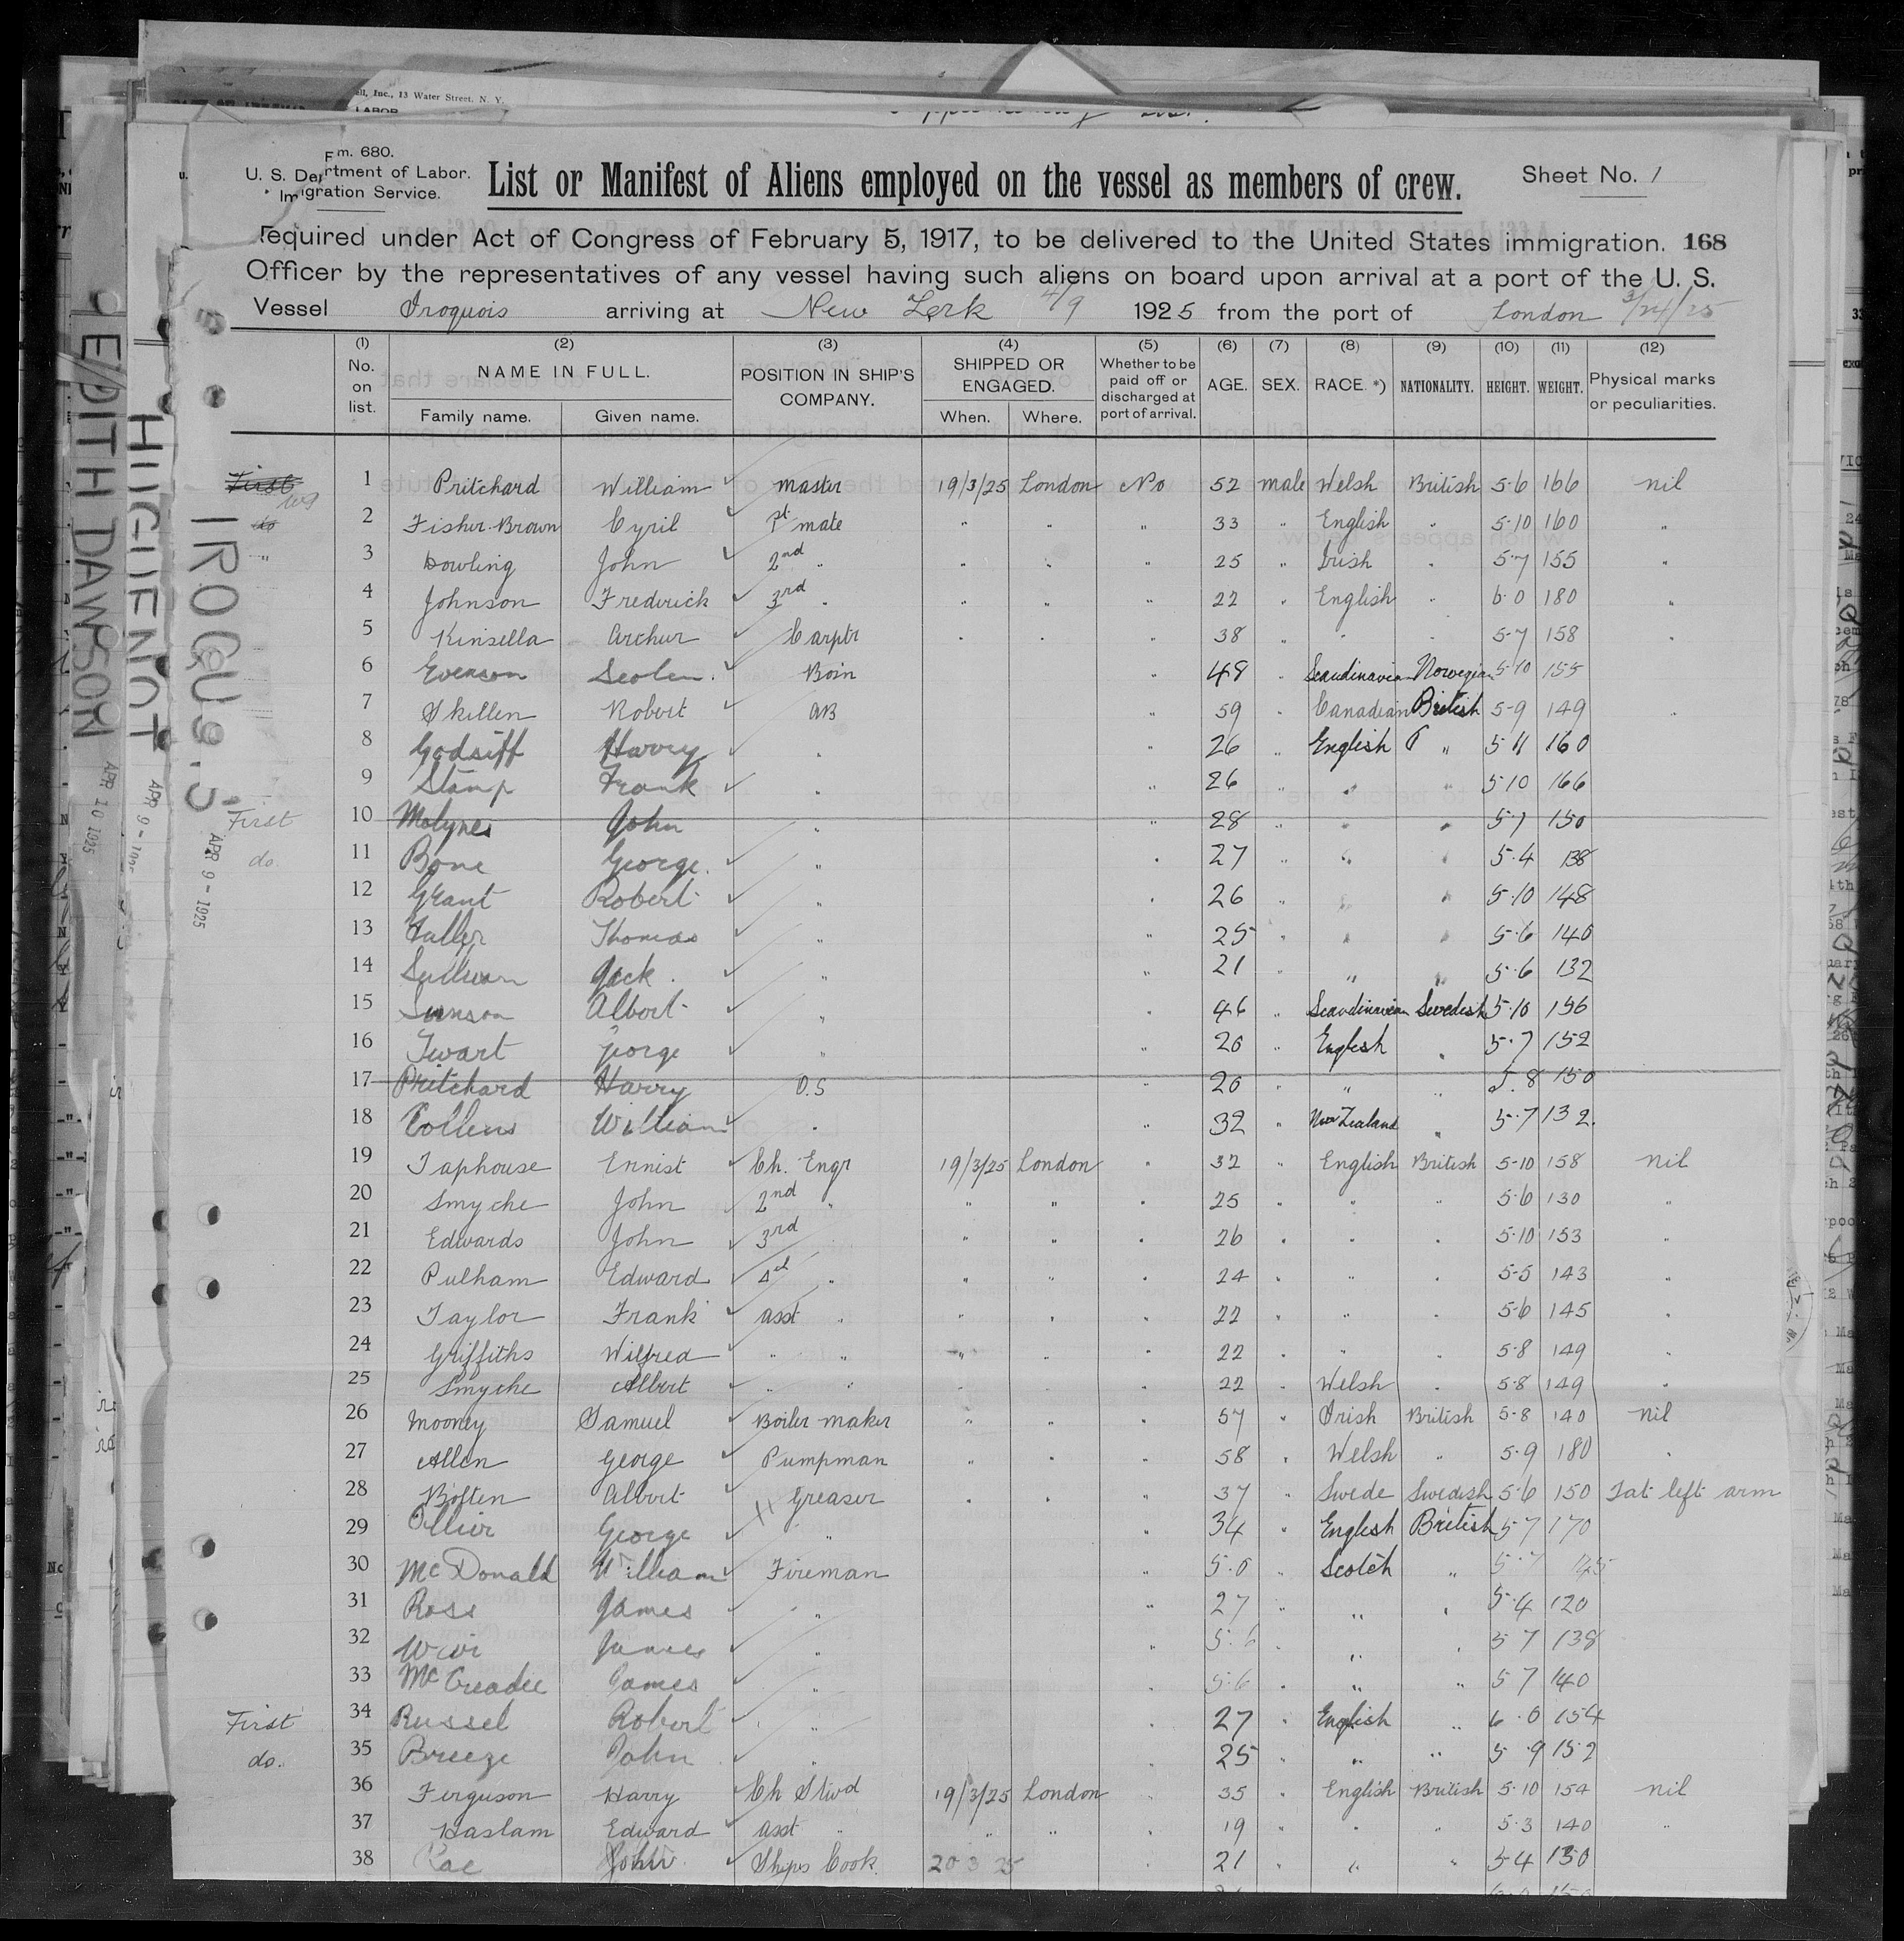 ell, Inc., 13 Water Street. N. Y.
LABOR
Fm. 680.
U. S. Department of Labor.
Immigration Service.
List or Manifest of Aliens employed on the vessel as members of crew.
Sheet No. 1
required under Act of Congress of February 5, 1917, to be delivered to the United States immigration. 168
Officer by the representatives of any vessel having such aliens on board upon arrival at a port of the U. S.
Vessel Iroquois arriving at New York 4/9 1925 from the port of London 3/24/25
(1) (2) (3) (4) (5) (6) (7) (8) (9) (10) (11) (12)
No. on list. NAME IN FULL. POSITION IN SHIP'S COMPANY. SHIPPED OR ENGAGED. Whether to be paid off or discharged at port of arrival. AGE. SEX. RACE. *) NATIONALITY. HEIGHT. WEIGHT. Physical marks or peculiarities.
Family name. Given name. When. Where.
First 1 Pritchard William master 19/3/25 London No 52 male Welsh British 5-6 166 nil
do 2 Fisher-Brown Cyril 1st mate " " " 33 " English " 5-10 160 "
" 3 Dowling John 2nd " " " " 25 " Irish " 5-7 155 "
4 Johnson Frederick 3rd " " " " 22 " English " 6-0 180 "
5 Kinsella Arthur Carptr " " " 38 " " " 5-7 158 "
6 Evenson Bosn " 48 " Scandinavian Norwegian 5-10 155
7 Skillen Robert AB " 59 " Canadian British 5-9 149 "
8 Godsiff Harvey " " 26 " English " 5 11 160
9 Stamp Frank " " 26 " " " 5 10 166
First 10 Molynes John " " 28 " " " 5-7 150
do. 11 Bone George " " 27 " " " 5.4 138
12 Grant Robert " " 26 " " " 5-10 148
13 Fuller Thomas " " 25 " " " 5-6 140
14 Sullivan Jack " " 21 " " " 5-6 132
15 Swnson Albert " " 46 " Scandinavian Swedish 5-10 156
16 Twart George " " 20 " English " 5-7 152
17 Pritchard Harry O.S " 20 " " " 5.8 150
18 Collins William " " 32 " New Zealand " 5-7 132.
19 Taphouse Ernist Ch. Engr 19/3/25 London " 32 " English British 5-10 158 nil
20 Smythe John 2nd " " " " 25 " " " 5-6 130 "
21 Edwards John 3rd " " " " 26 " " " 5-10 153 "
22 Pulham Edward 4th " " " " 24 " " " 5-5 143 "
23 Taylor Frank asst " " " " 22 " " " 5-6 145 "
24 Griffiths Wilfred " " " " " 22 " " " 5-8 149 "
25 Smythe Albert " " " " " 22 " Welsh " 5-8 149 "
26 Mooney Samuel Boiler maker " " " 57 " Irish British 5-8 140 nil
27 Allen George Pumpman " " " 58 " Welsh " 5-9 180 "
28 Boften Albert Greaser " " " 37 " Swede Swedish 5-6 150 Tat left arm
29 Ollier George " " 34 " English British 5-7 170
30 McDonald William Fireman " 5.0 " Scotch " 5-7 145
31 Ross James " " 27 " " " 5-4 120
32 Weir James " " 5.6 " " " 5 7 138
33 McCreadie James " " 56 " " " 5 7 140
First 34 Russel Robert " " 27 " English " 6.0 154
do. 35 Breeze John " " 25 " " " 5 9 152
36 Ferguson Harry Ch Stwd 19/3/25 London " 35 " English British 5-10 154 nil
37 Haslam Edward asst " " " " 19 " " " 5.3 140 "
38 Rae John Ships Cook. 20 3 25 " 21 " " " 5 4 130
IROQUOIS
APR 9 - 1925
HUGUENOT
APR 9 - 1925
EDITH DAWSON
APR 10 1925